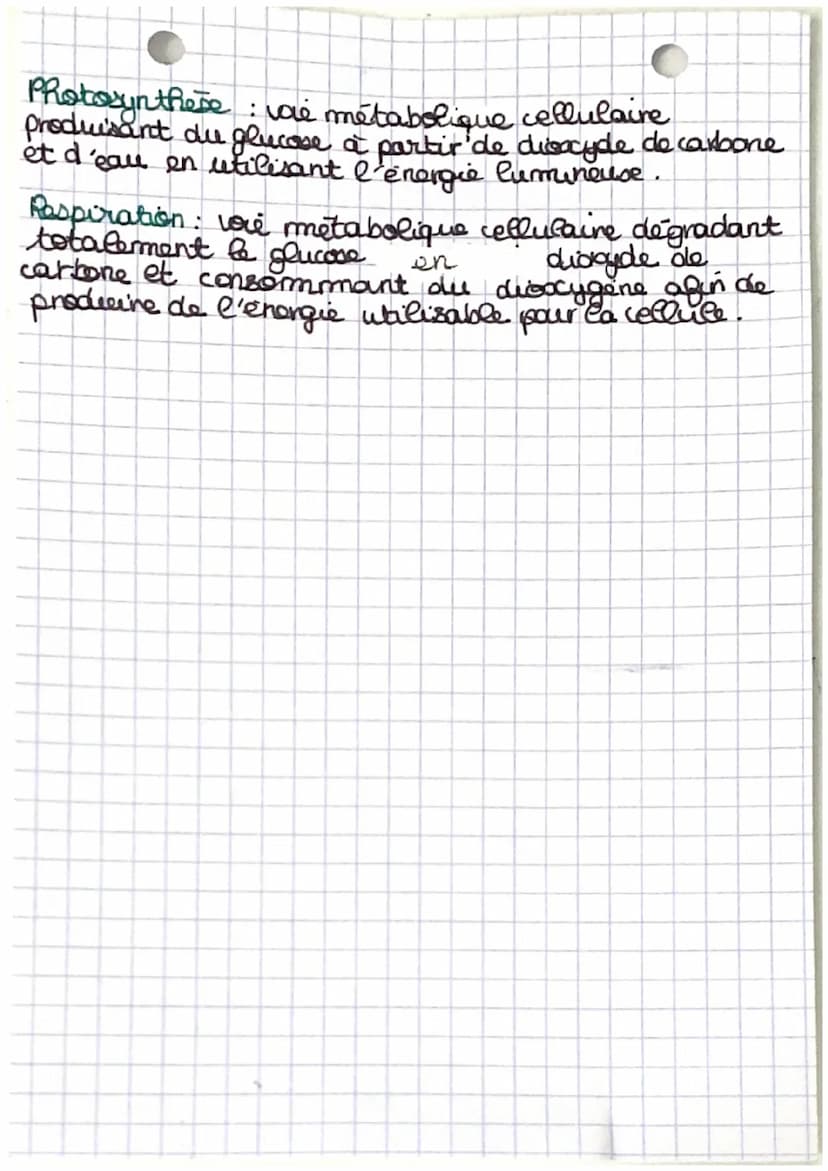 Photosynthèse : voie métabolique cellulaire
produisant du glucose à partir de dioxyde de carbone
et d'eau en utilisant l'énergie lumineuse.
Respiration : voie métabolique cellulaire dégradant
totalement le glucose en dioxyde de
carbone et consommant du dioxygène afin de
produire de l'énergie utilisable pour la cellule.